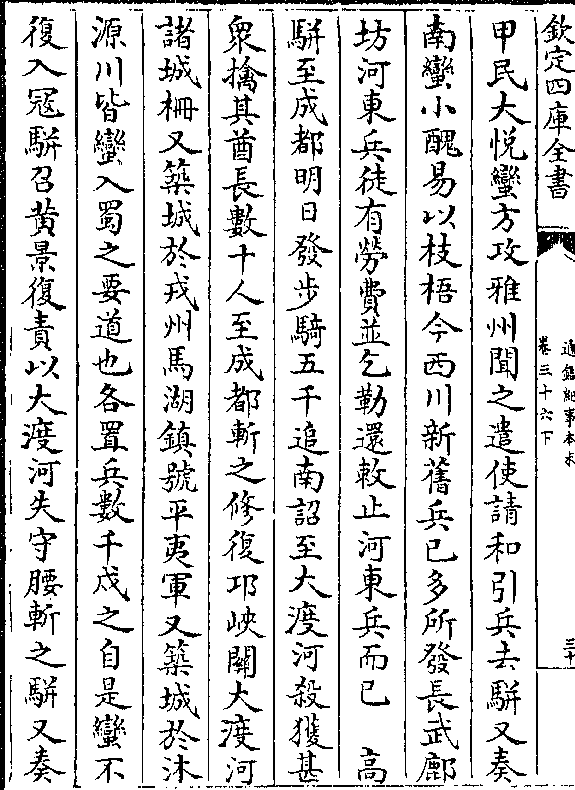 欽定四庫全書
通鑑紀事本末
卷三十六下
三十
甲民大悅蠻方攻雅州聞之遣使請和引兵去駢又奏
南蠻小醜易以枝梧今西川新舊兵已多所發長武鄜
坊河東兵徒有勞費並乞勒還敕止河東兵而已　高
駢至成都明日發步騎五千追南詔至大渡河殺獲甚
衆擒其酋長數十人至成都斬之修復邛峽關大渡河
諸城柵又築城於戎州馬湖鎮號平夷軍又築城於沐
源川皆蠻入蜀之要道也各置兵數千戍之自是蠻不
復入冦駢召黄景復責以大渡河失守腰斬之駢又奏